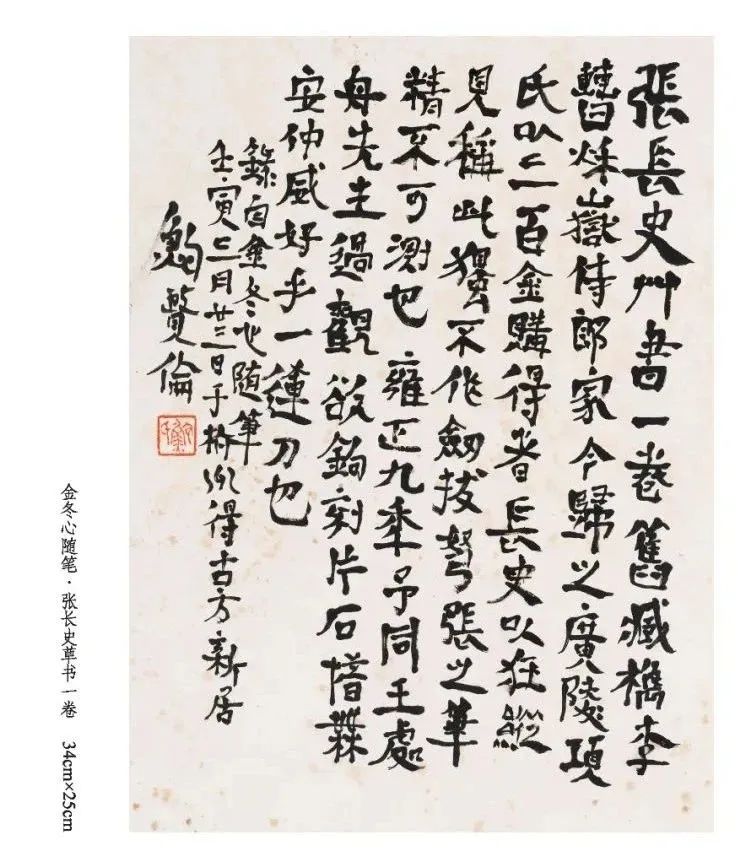 張長史艸書一卷舊藏檇李
曹秌嶽侍郎家今歸之廣陵項
氏以二百金購得者長史以狂縱
見稱此獨不作劍拔弩張之筆
精不可測也雍正九秊予同王處
毋先生過觀欲鉤刻片石惜無
安仲威好手一運刀也
錄自金冬心随筆
壬寅二月廿三日于杭州得古方新居
鮑賢倫
金冬心随笔·张长史草书一卷 34cm×25cm